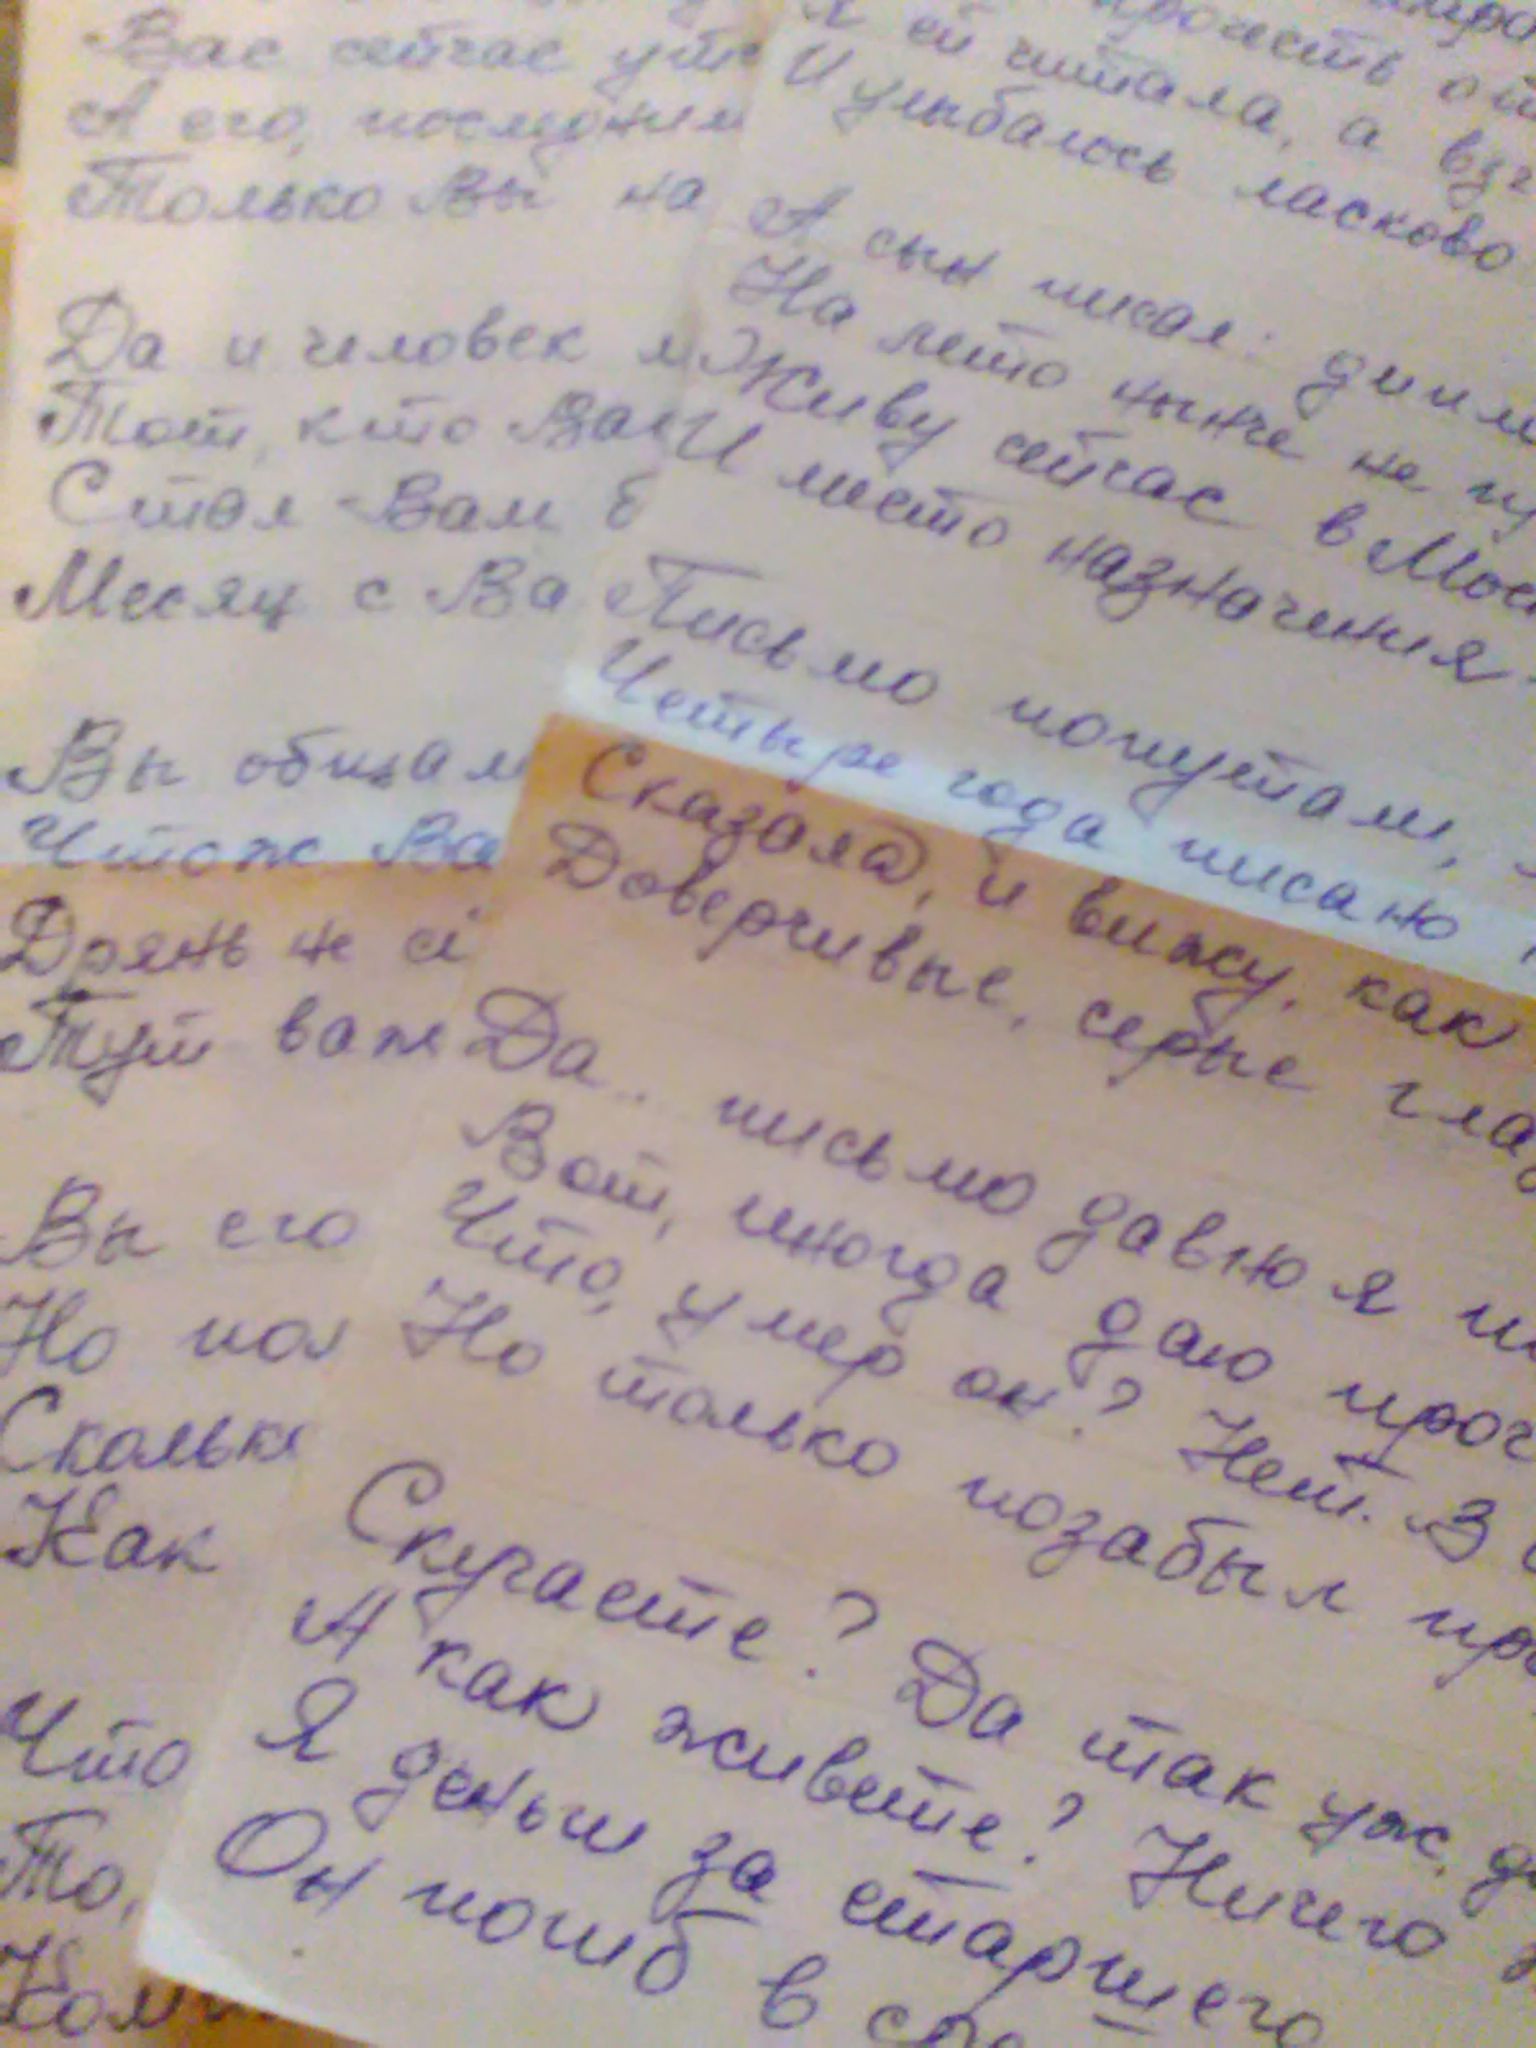 Вас сейчас
А его, послушни
Только Вы на
Да и человек
Тот, кто Вам
Стал Вам б
Месяц с Ва
Вы общам
Чтож Ва
Дрянь н
Тут важ
Вы его
Но пол
Скольк
Как
Что
То,
прочесть
Я ей читала, а взг
И улыбалось ласково
А сын писал: дипл
На лето нынче не
Живу сейчас в Моск
И место назначения
Письмо попутал,
Четыре года писано
Сказала, и вижу, как
Доверчивые, серые глаз
Да.. письмо давно я
Вот, иногда даю проч
Что, умер он? Нет. В
Но только позабыл про
Скучаете? Да так уж, д
А как живёте? Ничего
Я деньги за старшего
Он погиб в